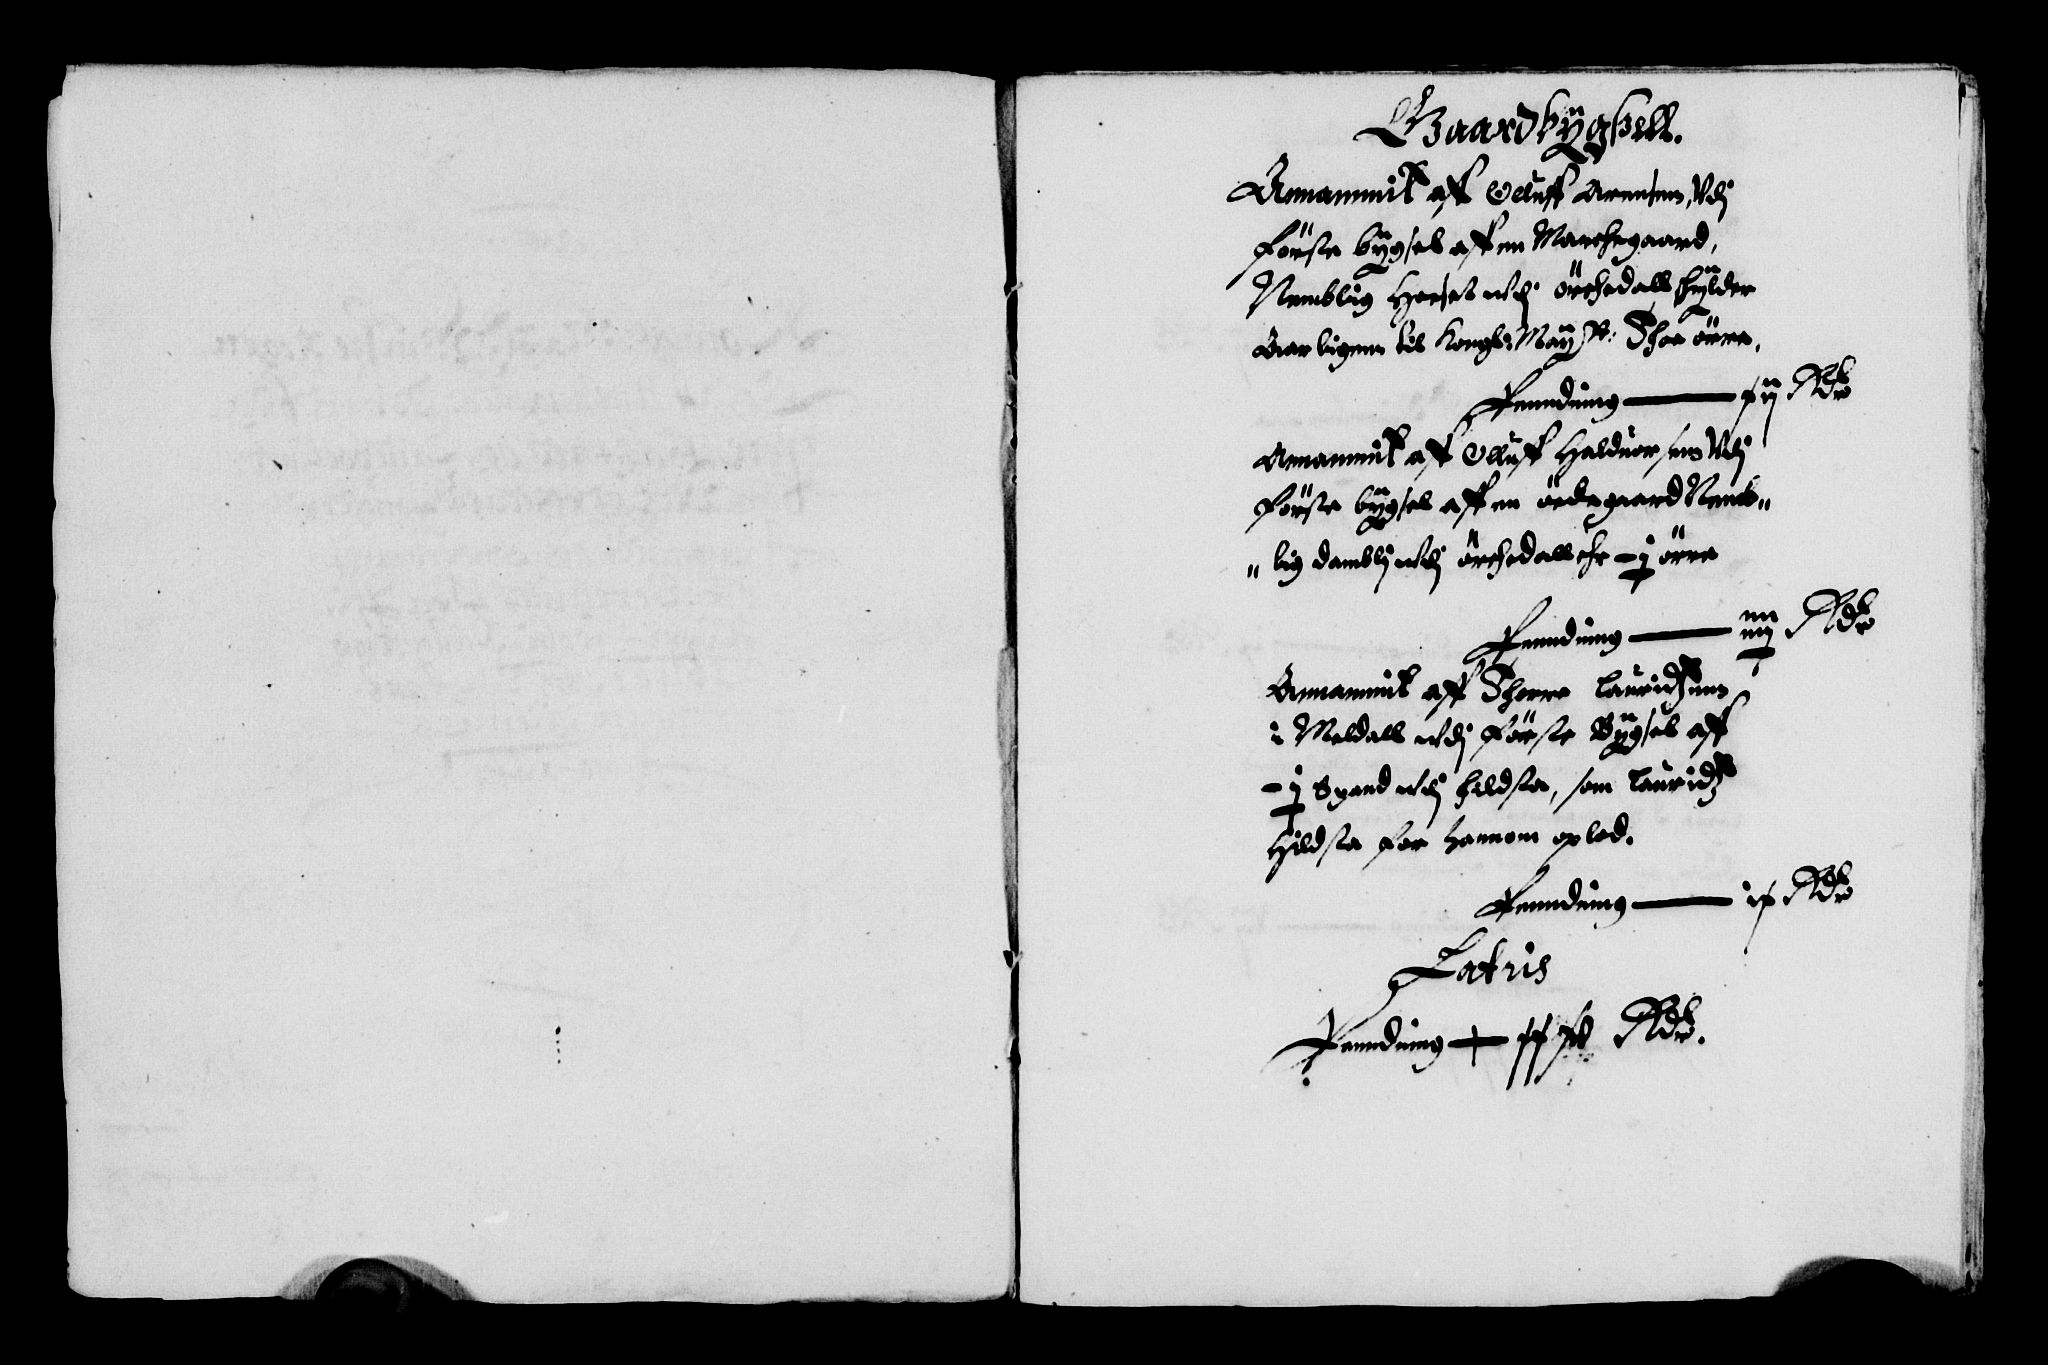 Gaardbÿgsell.
Annammit aff Oluff Arensen, Udj
Første bÿgsel aff en Marchegaard,
Nemblig Horset udj örchedall skÿlder
Aarligenn til Kongl: Maÿ st: Thoe örre,
Penndning ——— xij Rdr
Annammit aff Oluff Halduorsen Udj
Første bÿgsel aff en ödegaard Nemb"
"lig damblj udj örchedall ehr -j örre
Penndning ——— Rdr
Annammit aff Thorre Lauridzsenn
i Meldall udj Første Bÿgsel aff
-j Spand udj hildsta, som Lauridz
Hildsta for hannom oplod.
Penndning ——— ix Rdr
Lateris
Penndning — Rdr.